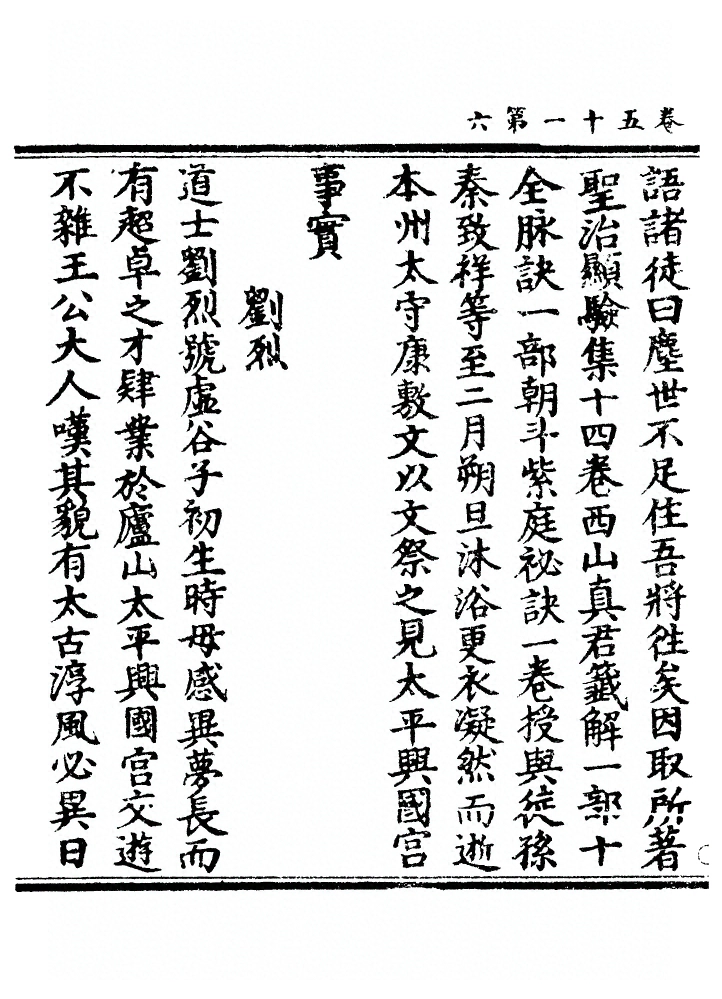 卷五十一第六
語諸徒曰塵世不足住吾將徃矣因取所著
聖治顯驗集十四卷西山真君籤解一部十
全脉訣一部朝斗紫庭祕訣一卷授與徒孫
秦致祥等至二月朔旦沐浴更衣凝然而逝
本州太守康敷文以文祭之見太平興國宫
事實
劉烈
道士劉烈號虛谷子初生時母感異夢長而
有超卓之才肄業於廬山太平興國宫交遊
不雜王公大人嘆其貌有太古淳風必異日